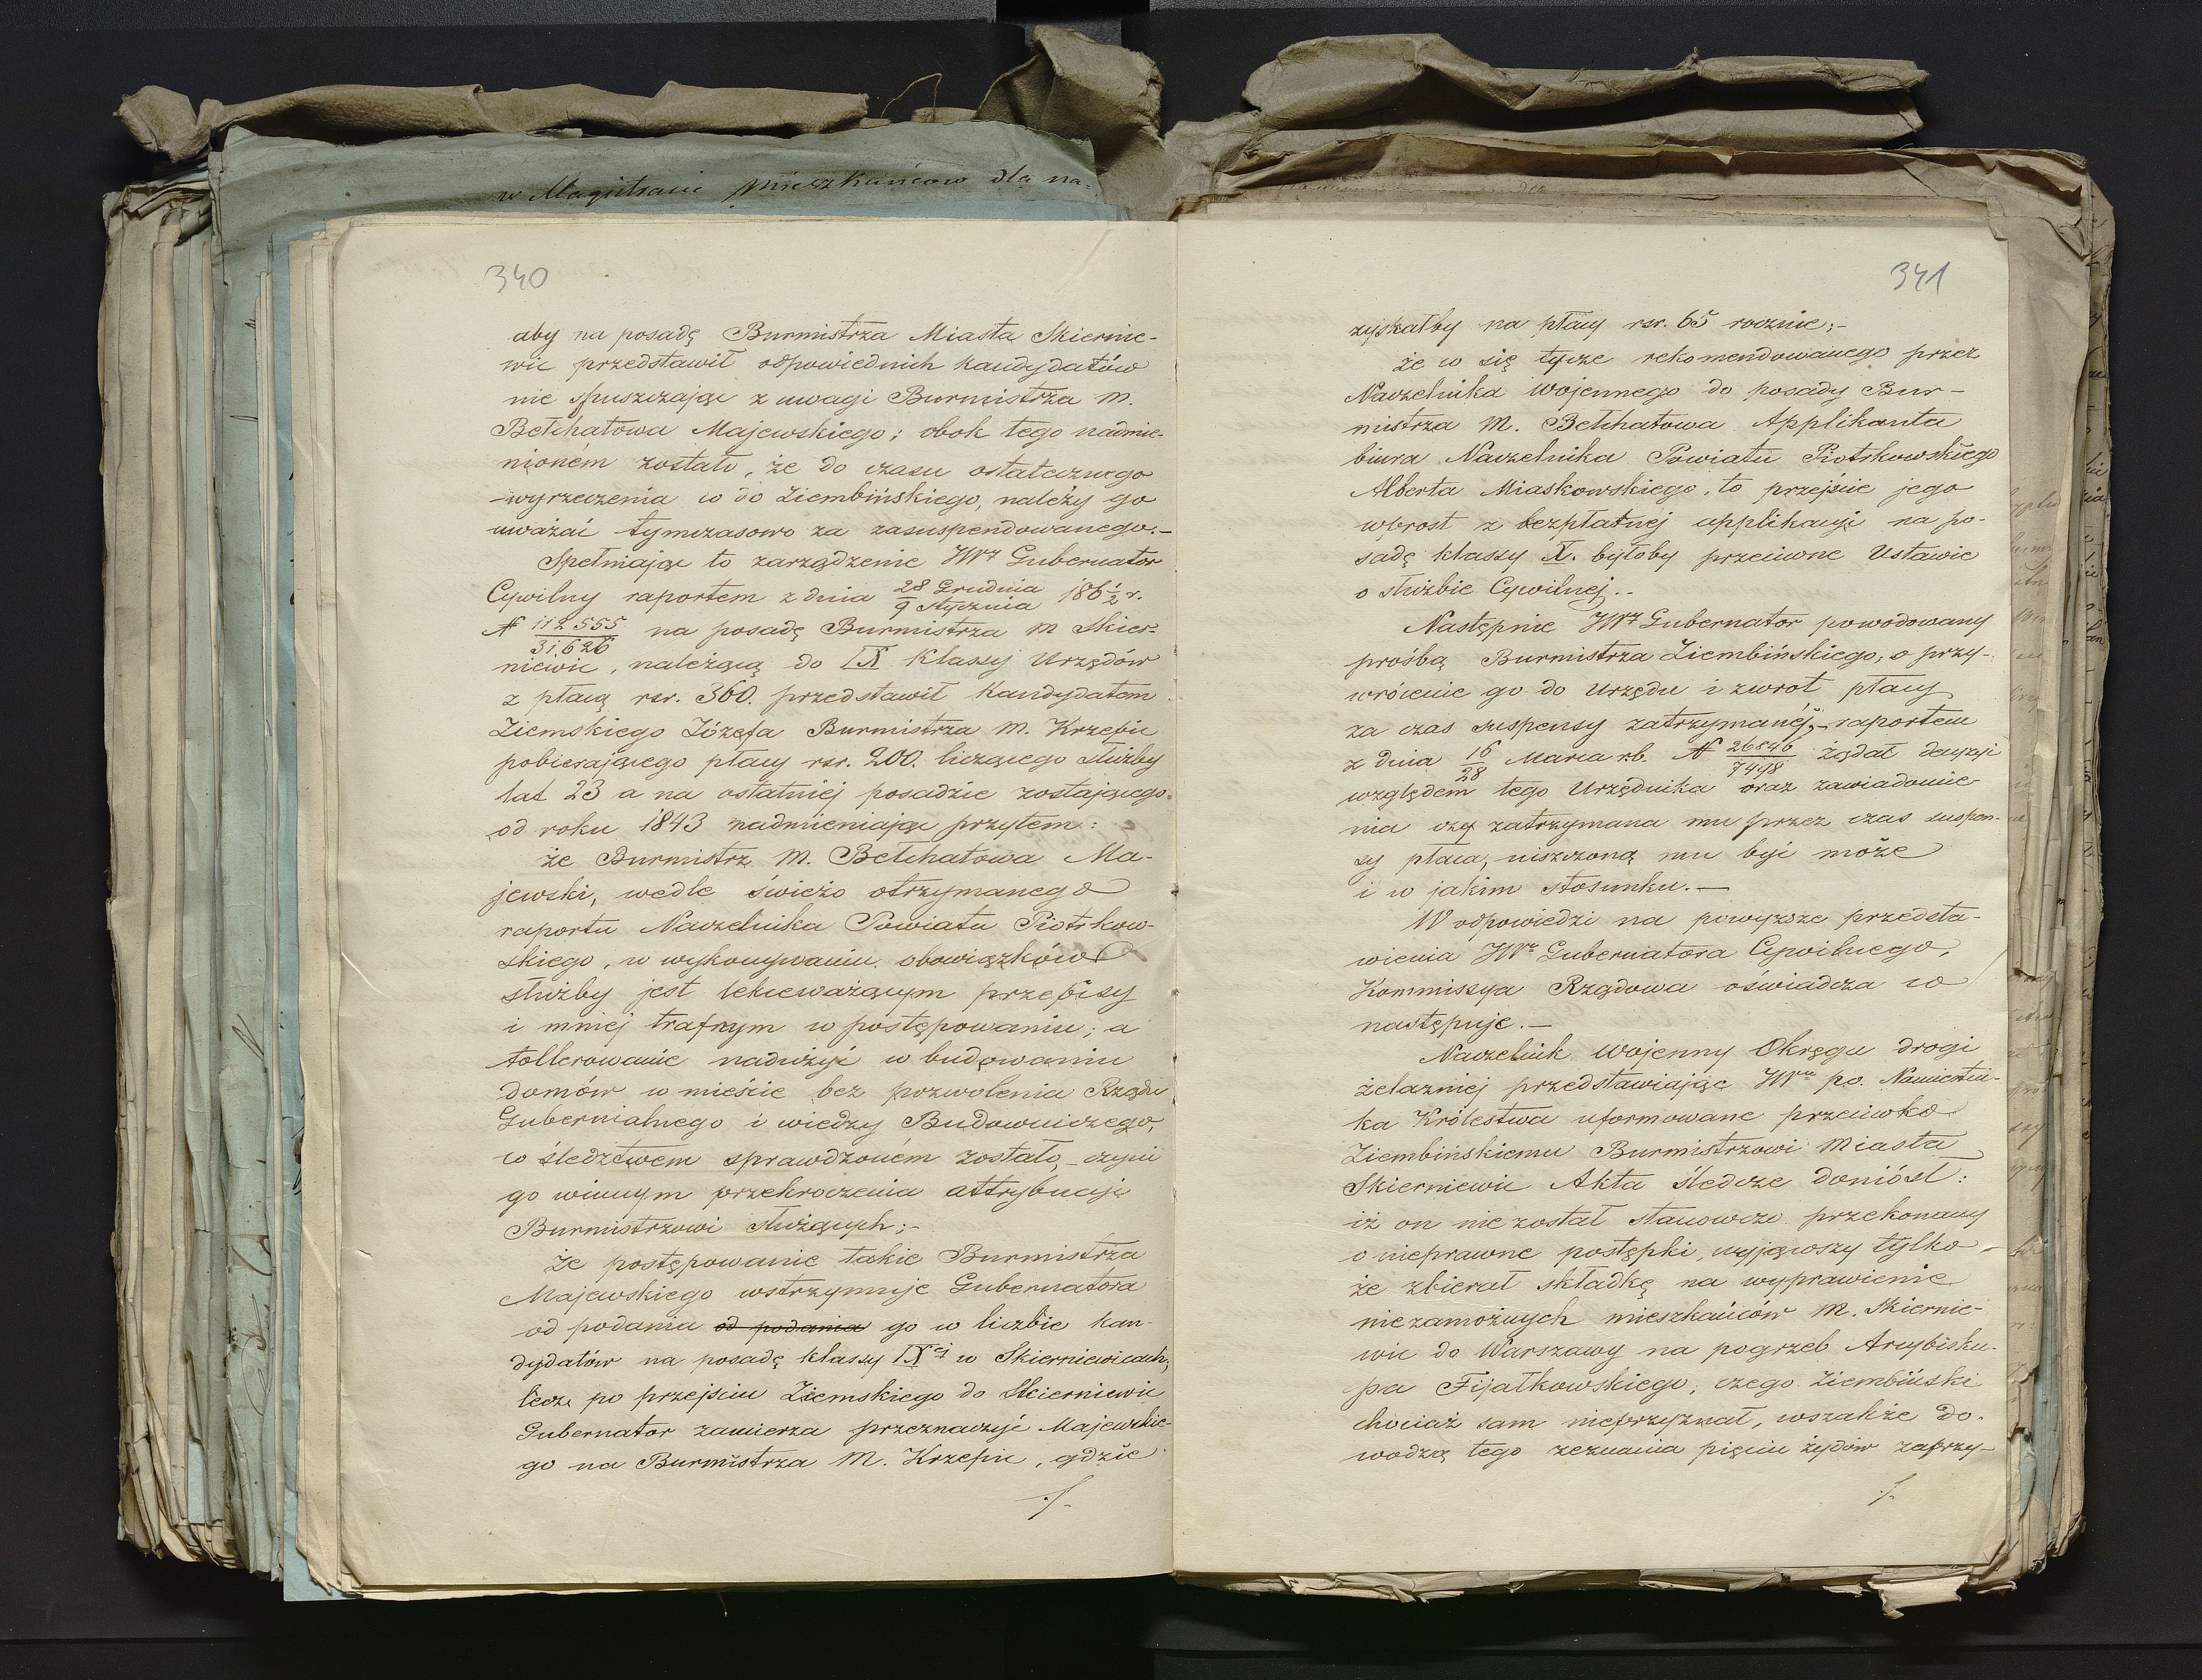 w Magistracie mieszkańcow dla na-
340
aby na posadę Burmistrza Miasta Skiernie-
wic przedstawił odpowiednich kandydatów
nie spuszczając z uwagi Burmistrza M.
Bełchatowa Majewskiego; obok tego nadmie-
nioném zostało, że do czasu ostatecznego
wyrzeczenia co do Ziembińskiego, należy go
uważać tymczasowo za zasuspendowanego.-
Spełniając to zarządzenie JWz Gubernator
Cywilny raportem z dnia 28 Grudnia / 9 Stycznia 186 1/2 r.
N 112555 / 31,626 na posadę Burmistrza M Skier-
niewic, należącą do IX klassy Urzędów
z płacą rsr. 360. przedstawił kandydatem
Ziemskiego Józefa Burmistrza M. Krzepic
pobierającego płacy rsr. 200. liczącego służby
lat 23 a na ostatniéj posadzie zostającego
od roku 1843 nadmieniając przytem:
że Burmistrz M. Bełchatowa Ma-
jewski, wedle świeżo otrzymanego
raportu Naczelnika Powiatu Piotrkow-
skiego, w wykonywaniu obowiązków
służby jest lekceważącym przepisy
i mniej trafnym w postępowaniu; a
tollerowanie nadużyć w budowaniu
domów w mieście bez pozwolenia Rządu
Gubernialnego i wiedzy Budowniczego,
co śledztwem sprawdzoném zostało, - czyni
go winnym przekroczenia attrybucji
Burmistrzowi służących;-
że postępowanie takie Burmistrza
Majewskiego wstrzymuje Gubernatora
od podania od podania go w liczbie kan-
dydatów na posadę klassy IXej w Skierniewicach;
lecz po przejściu Ziemskiego do Skierniewic
Gubernator zamierza przeznaczyć Majewskie-
go na Burmistrza M. Krzepic, gdzie
./.
341
zyskałby na płacy rsr. 65 rocznie;-
że co się tycze rekomendowanego przez
Naczelnika Wojennego do posady Bur-
mistrza M. Bełchatowa Applikanta
biura Naczelnika Powiatu Piotrkowskiego
Alberta Miaskowskiego, to przejście jego
wprost z bezpłatnej applikacji na po-
sadę klassy X. byłoby przeciwne Ustawie
o służbie Cywilnej.-
Następnie JWz Gubernator powodowany
prośbą Burmistrza Ziembińskiego, o przy-
wrócenie go do Urzędu i zwrot płacy
za czas suspensy zatrzymanéj, - raportem
z dnia 16/28 Marca r.b. N 26846 / 7498 żądał decyzji
względem tego Urzędnika oraz zawiadomie
nia czy zatrzymana mu przez czas suspen-
sy płaca, uiszczoną mu być może
i w jakim stosunku.-
W odpowiedzi na powyższe przedsta-
wienia JWo Gubernatora Cywilnego,
Kommissya Rządowa oświadcza co
następuje.-
Naczelnik Wojenny Okręgu drogi
żelaznej przedstawiając JWu po. Namiestni-
ka Królestwa uformowane przeciwko
Ziembińskiemu Burmistrzowi Miasta
Skierniewic Akta śledcze doniósł:
iż on nie został stanowczo przekonany
o nieprawne postępki, wyjąwszy tylko -
że zbierał składkę na wyprawienie
niezamożnych mieszkańców M. Skiernie-
wic do Warszawy na pogrzeb Arcybisku-
pa Fijałkowskiego; czego Ziembiński
chociaż sam nieprzyznał, wszakże do-
wodzą tego zeznania pięciu żydów zaprzy-
./.